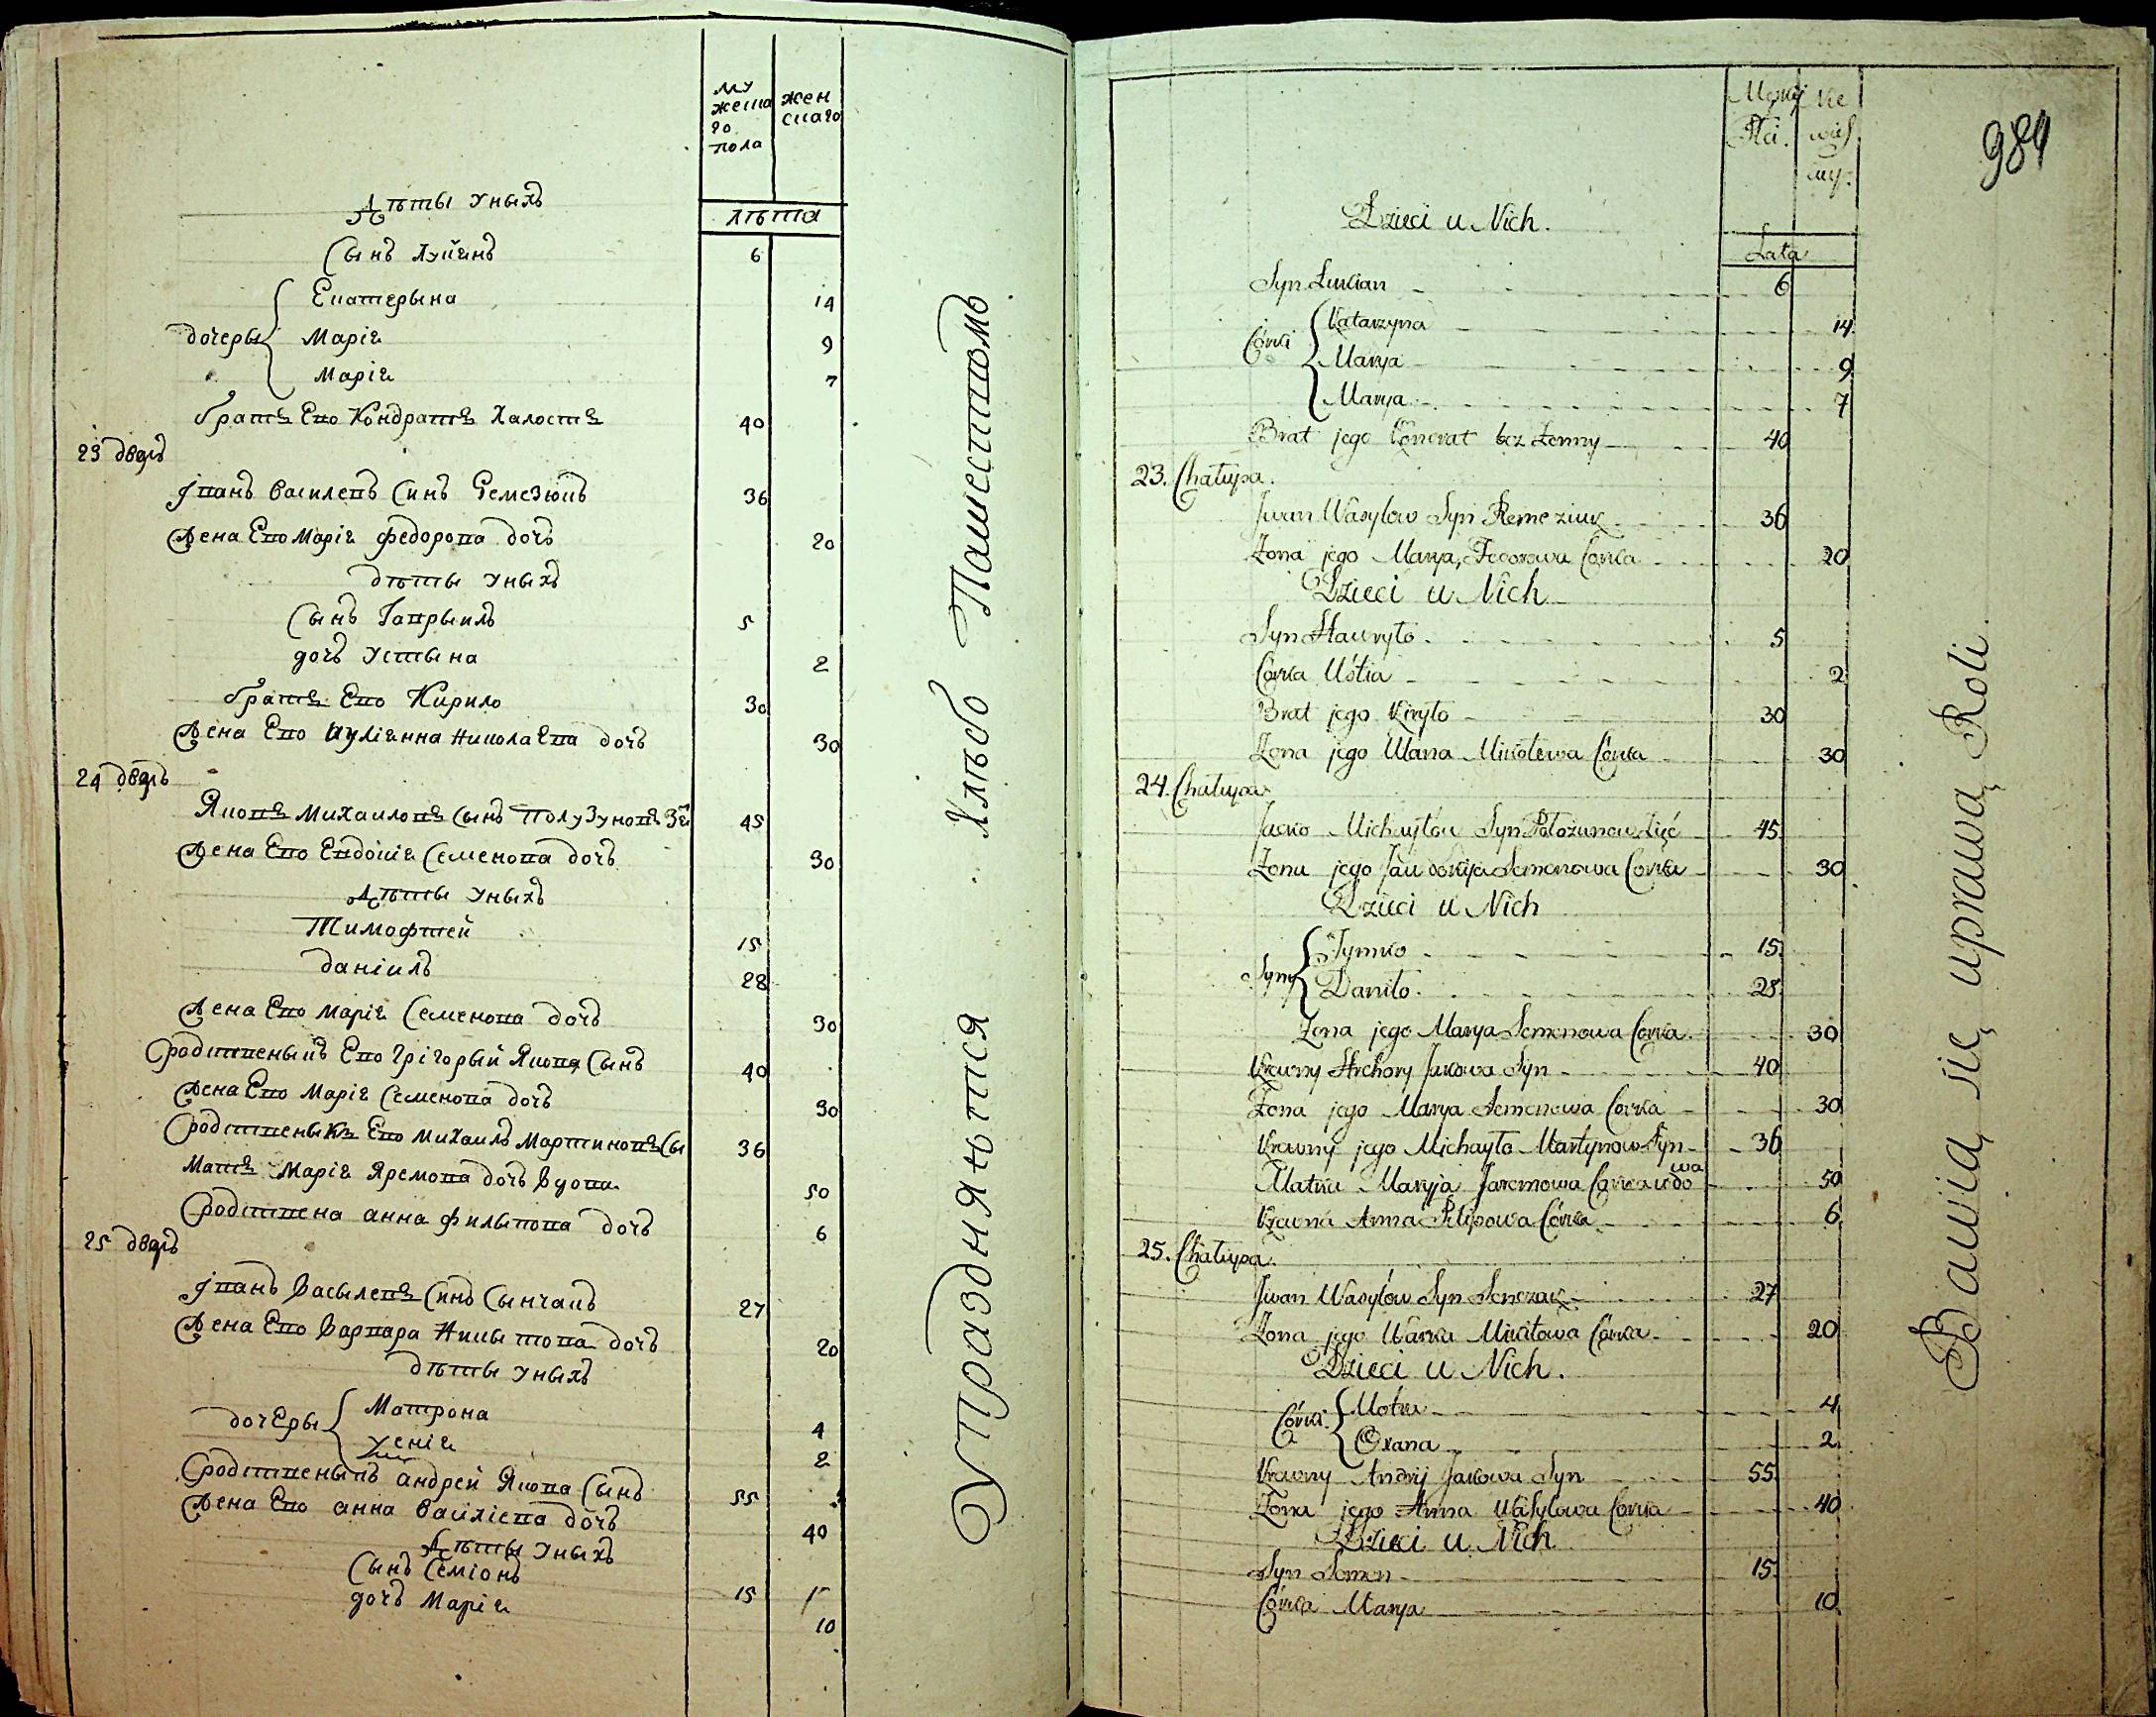 му
жеска
го
пола
жен
скаго
Дѣты уныхъ
лѣта
Сынъ Лукіянъ 6
дочеры
Екатерына 14
Марія 9
Марія 7
братъ Его Кондратъ Халостъ 40
23 дворъ
Іванъ Василевъ Синъ Ремезюкъ 36
Жена Его Марія федорова дочъ 20
дѣты уныхъ
Сынъ Гаврыилъ 5
дочъ Устына 2
братъ Его Кирило 30
Жена Его Иуліянна Николаева дочъ 30
24 дворъ
Яковъ Михаиловъ Сынъ Полузуновъ Зе 45
Жена Его Евдокія Семенова дочъ 30
Дѣты уныхъ
Тимофтей 15
Даніилъ 28
Жена Его Марія Семенова дочъ 30
Сродственыкъ Его Грігорый Якова Сынъ 40
Жена Его Марія Семенова дочъ 30
Сродственыкъ Его Михаилъ Мартиновъ Сы 36
Матъ Марія Яремова дочъ Вдова 50
Сродствена анна Филыпова дочъ 6
25 дворъ
Іванъ Васылевъ Синъ Сынчакъ 27
Жена Его Варвара Никытова дочъ 20
дѣты уныхъ
дочеры
Матрона 4
Ксенія 2
Сродственыкъ андрей Якова Сынъ 55
Жена Его анна Василіева дочъ 40
Дѣты уныхъ
Сынъ Семіонъ 15
дочъ Марія 10
Упраздняются Хлѣбо Пашествомъ
984
Męskij
Płci.
Nie
wieś
ciey:
Lata
Dzieci u Nich.
Syn Łukian 6
Córki
Katarzyna 14
Marya 9
Marya 7
Brat jego Kondrat bez Żenny 40
23. Chałupa.
Jwan Wasylow Syn Remeziuk 36
Żona jego Marya, Fedorowa Corka 20
Dzieci u Nich
Syn Hawryło 5
Corka Ustia 2
Brat jego Kiryło 30
Żona jego Ulana Mikołowa Córka 30
24. Chałupa
Jacko Michayłow Syn Połozunow Zięć 45
Żona jego Jaudokija Semenowa Corka 30
Dzieci u Nich
Syny
Tymko 15
Daniło 28
Żona jego Marya Semenowa Corka 30
Krewny Hrehory Jakowa Syn 40
Żona jego Marya Semenowa Corka 30
Krewny jego Michayło Martynow Syn 36
Matka Maryja Jaremowa Corka wdowa 50
Krewna Anna Pilipowa Córka 6
25. Chałupa.
Jwan Wasylow Syn Senczak 27
Żona jego Warka Mikitowa Córka 20
Dzieci u Nich.
Córki
Motra 4
Oxana 2
Krewny Andrij Jakowa Syn 55
Żona jego Anna Wasylowa Corka 40
Dzieci u Nich
Syn Semen 15
Córka Marya 10
Bawią się uprawą Roli.